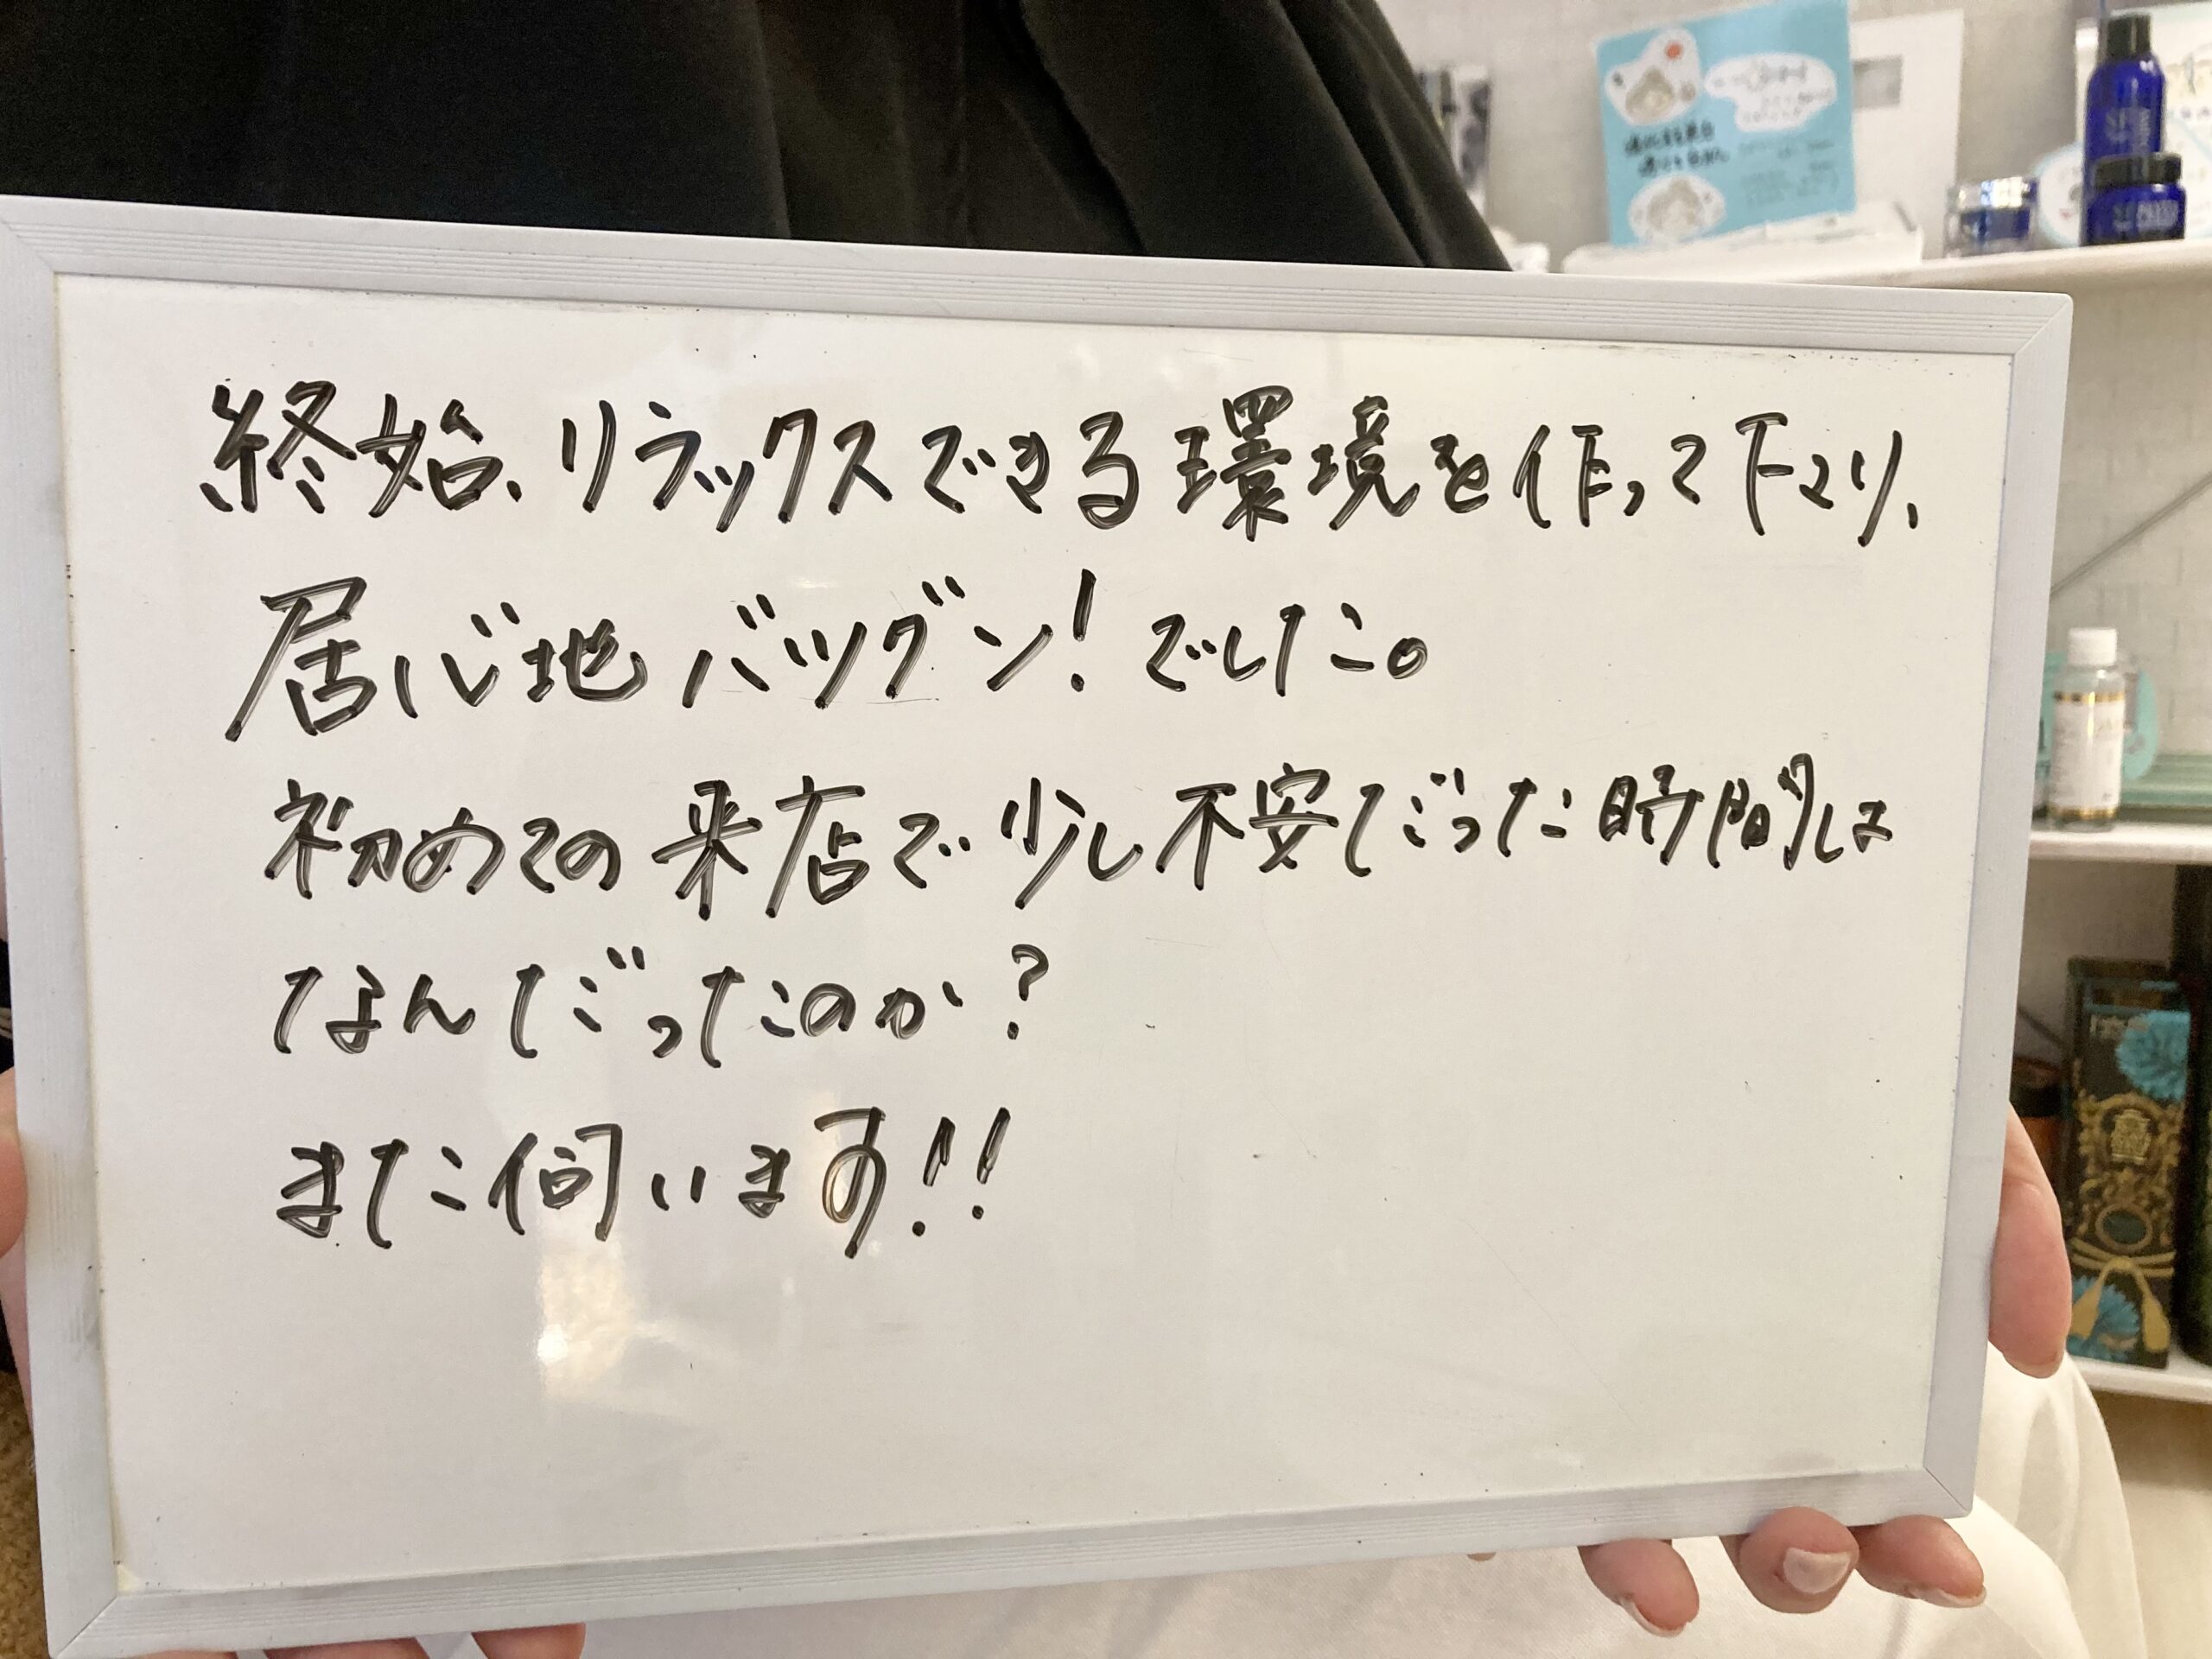 終始、リラックスできる環境を作って下さり、
居心地バツグン!でした。
初めての来店で少し不安だった時間は
なんだったのか?
また伺います!!